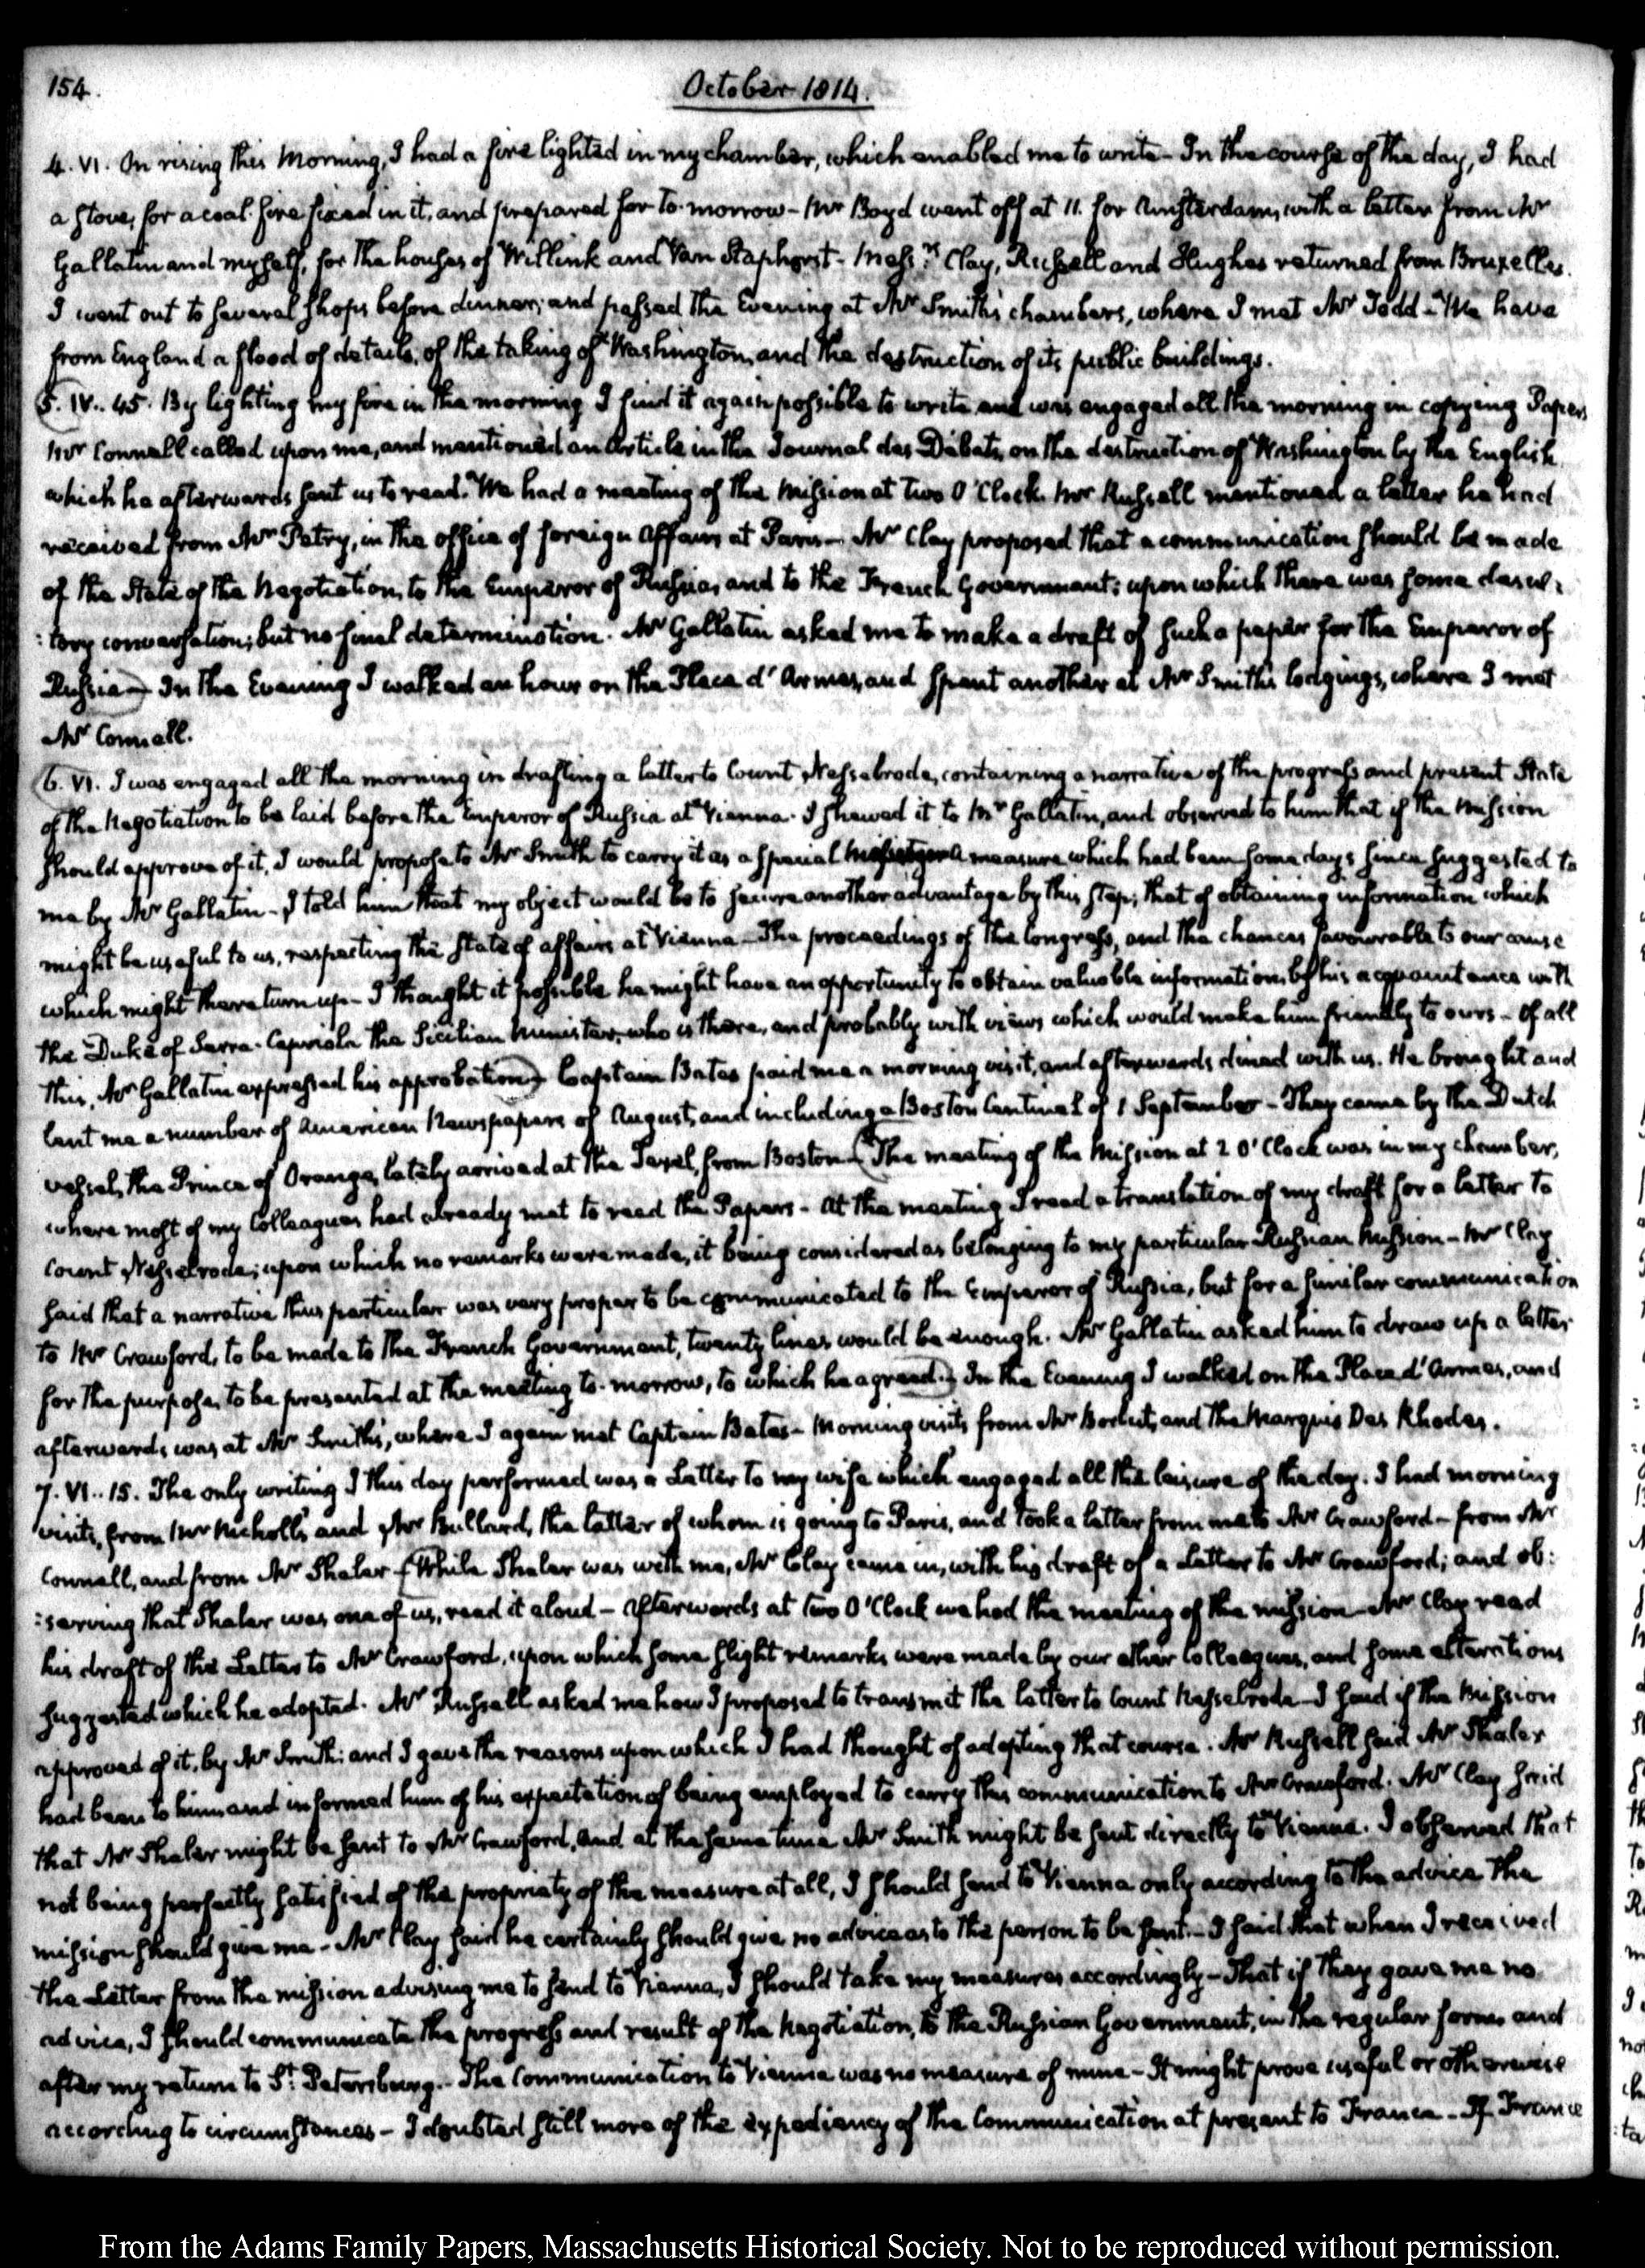 154.
October 1814.
4. VI. On rising this Morning, I had a fire lighted in my chamber, which enabled me to write - In the course of the day, I had
a stove, for a coal-fire fixed in it, and prepared for to-morrow - Mr Boyd went off at 11. for Amsterdam, with a letter from Mr
Gallatin and myself, for the houses of Willink and Van Staphorst - Messrs Clay, Russell and Hughes returned from Bruxelles.
I went out to several shops before dinner; and passed the Evening at Mr Smith's chambers, where I met Mr Todd - We have
from England a flood of details, of the taking of Washington, and the destruction of its public buildings.
5. IV.. 45. By lighting my fire in the morning I find it again possible to write and was engaged all the morning in copying Papers
Mr Connell called upon me, and mentioned an Article in the Journal des Débats, on the destruction of Washington by the English
which he afterwards sent us to read. We had a meeting of the Mission at two O'Clock. Mr Russell mentioned a letter he had
received from Mr Petry, in the office of foreign Affairs at Paris - Mr Clay proposed that a communication should be made
of the State of the Negotiation, to the Emperor of Russia, and to the French Government: upon which there was some desul:
:tory conversation; but no final determination. Mr Gallatin asked me to make a draft of such a paper for the Emperor of
Russia - In the Evening I walked an hour on the Place d'Armes, and spent another at Mr Smith's lodgings, where I met
Mr Connell.
6. VI. I was engaged all the morning in drafting a letter to Count Nesselrode, containing a narrative of the progress and present State
of the Negotiation to be laid before the Emperor of Russia at Vienna. I shewed it to Mr Gallatin, and observed to him that if the Mission
should approve of it, I would propose to Mr Smith to carry it as a special Messenger a measure which had been some days since suggested to
me by Mr Gallatin - I told him that my object would be to secure another advantage by this step; that of obtaining information which
might be useful to us, respecting the state of affairs at Vienna - The proceedings of the Congress, and the chances favourable to our cause
which might there turn up - I thought it possible he might have an opportunity to obtain valuable information, by his acquaintance with
the Duke of Serra-Capriola the Sicilian Minister, who is there, and probably with views which would make him friendly to ours - Of all
this, Mr Gallatin expressed his approbation - Captain Bates paid me a morning visit, and afterwards dined with us. He brought and
lent me a number of American Newspapers of August, and including a Boston Centinel of 1 September - They came by the Dutch
vessel, the Prince of Orange, lately arrived at the Texel, from Boston - The meeting of the Mission at 2 O'Clock was in my chamber,
where most of my Colleagues had already met to read the Papers - At the meeting I read a translation of my draft for a letter to
Count Nesselrode; upon which no remarks were made, it being considered as belonging to my particular Russian Mission - Mr Clay
said that a narrative thus particular was very proper to be communicated to the Emperor of Russia, but for a similar communication
to Mr Crawford, to be made to the French Government, twenty lines would be enough. Mr Gallatin asked him to draw up a letter
for the purpose, to be presented at the meeting to-morrow, to which he agreed. In the Evening I walked on the Place d'Armes, and
afterwards was at Mr Smith's, where I again met Captain Bates - Morning visits from Mr and the Marquis Des Rhodes.
7. VI.. 15. The only writing I this day performed was a Letter to my wife which engaged all the leisure of the day. I had morning
visits, from Mr Nicholls and Mr Bullard, the latter of whom is going to Paris, and took a letter from me to Mr Crawford - from Mr
Connell, and from Mr Shaler - While Shaler was with me, Mr Clay came in, with his draft of a Letter to Mr Crawford; and ob:
:serving that Shaler was one of us, read it aloud - Afterwards at two O'Clock we had the meeting of the mission - Mr Clay read
his draft of the Letter to Mr Crawford, upon which some slight remarks were made by our other Colleagues, and some alterations
suggested which he adopted. Mr Russell asked me how I proposed to transmit the letter to Count Nesselrode - I said if the Mission
approved of it, by Mr Smith: and I gave the reasons upon which I had thought of adopting that course. Mr Russell said Mr Shaler
had been to him and informed him of his expectation of being employed to carry this communication to Mr Crawford. Mr Clay said
that Mr Shaler might be sent to Mr Crawford, and at the same time Mr Smith might be sent directly to Vienna. I observed that
not being perfectly satisfied of the propriety of the measure at all, I should send to Vienna only according to the advice the
mission should give me - Mr Clay said he certainly should give no advice as to the person to be sent. - I said that when I received
the Letter from the mission advising me to send to Vienna, I should take my measures accordingly - That if they gave me no
advice, I should communicate the progress and result of the Negotiation, to the Russian Government, in the regular forms and
after my return to St. Petersburg. - The Communication to Vienna was no measure of mine - It might prove useful or otherwise
according to circumstances - I doubted still more of the expediency of the Communication at present to France - If France
From the Adams Family Papers, Massachusetts Historical Society. Not to be reproduced without permission.